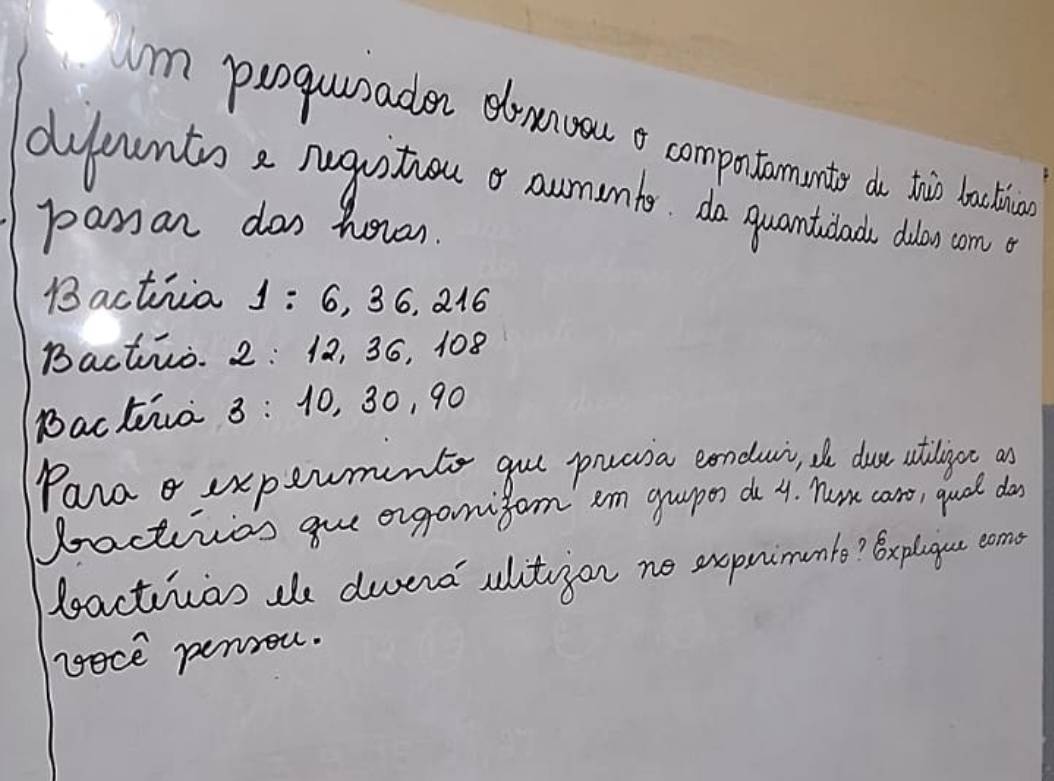 Um pesquisador observou o comportamento de três bactérias
diferentes e registrou o aumento. da quantidade delas com o
passar das horas.
Bactéria 1: 6, 36, 216
Bactéria. 2: 12, 36, 108
Bactéria 3: 10, 30, 90
Para o experimento que precisa concluir, ele deve utilizar as
bactérias que organizam em grupos de 4. Nesse caso, qual das
bactérias ele deverá ulitizar no experimento? Explique como
você pensou.